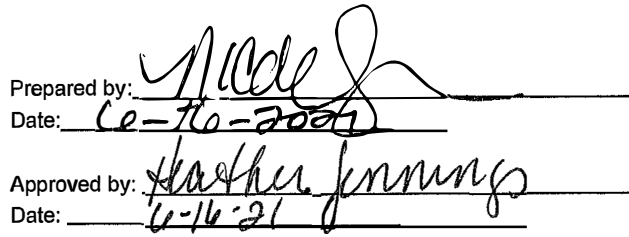 Prepared by: Nicole
Date: 6-16-2021
Approved by: Heather Jennings
Date: 6-16-21